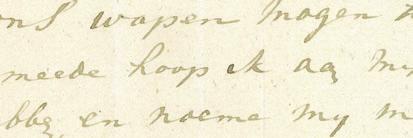 ons wapen mogen
meede hoop ik aan my
bbe en noeme my